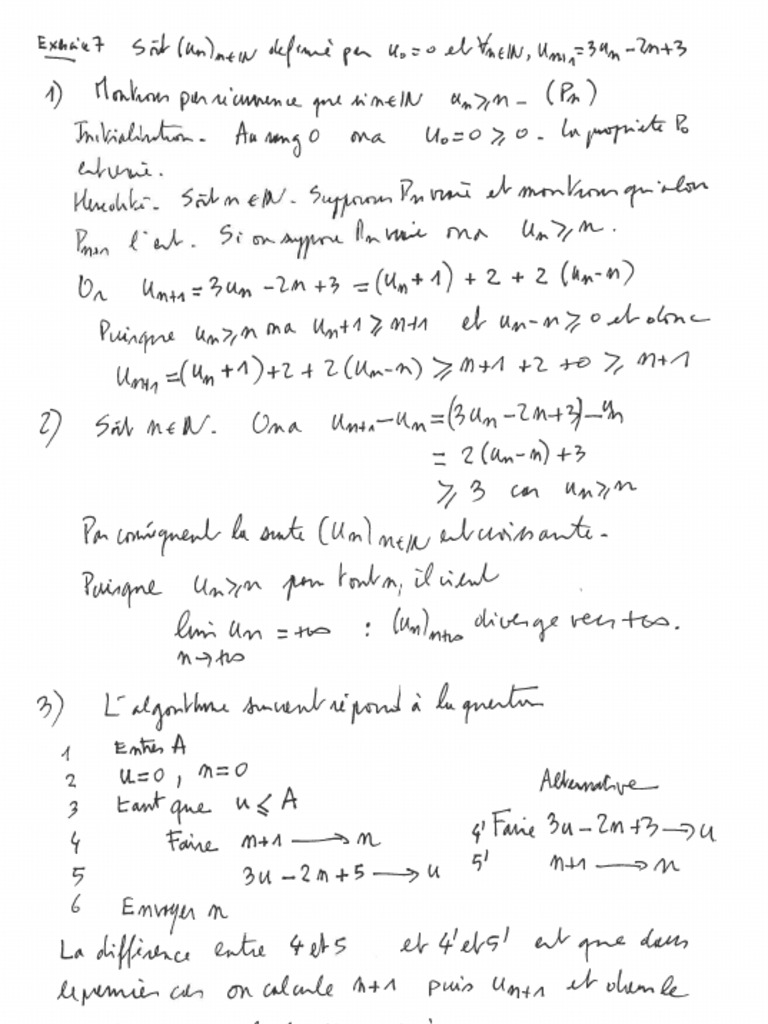 Exercice 7 Soit (un)n∈ℕ definie par u0=0 et ∀n∈ℕ, un+1=3un-2n+3
1) Montrons par récurrence que si n∈ℕ un⩾n - (Pn)
Initialisation. Au rang 0 on a u0=0⩾0. La propriete P0
est vraie.
Heredité. Soit n∈ℕ. Supposons Pn vraie et montrons qu'alors
Pn+1 l'est. Si on suppose Pn vraie on a un⩾n.
Or un+1=3un-2n+3=(un+1)+2+2(un-n)
Puisque un⩾n on a un+1⩾n+1 et un-n⩾0 et donc
un+1=(un+1)+2+2(un-n)⩾n+1+2+0⩾n+1
2) Soit n∈ℕ. On a un+1-un=(3un-2n+3)-un
= 2(un-n)+3
⩾ 3 car un⩾n
Par conséquent la suite (un)n∈ℕ est croissante.
Puisque un⩾n pour tout n, il vient
lim un = +∞ : (un)n→∞ diverge vers +∞.
n→+∞
3) L'algorithme suivant répond à la question
1 Entrer A
2 u=0, n=0
Alternative
3 tant que u⩽A
4 Faire n+1 → n 4' Faire 3u-2n+3 → u
5 3u-2n+5 → u 5' n+1 → n
6 Envoyer n
La différence entre 4 et 5 et 4' et 5' est que dans
le premier cas on calcule n+1 puis un+1 et dans le